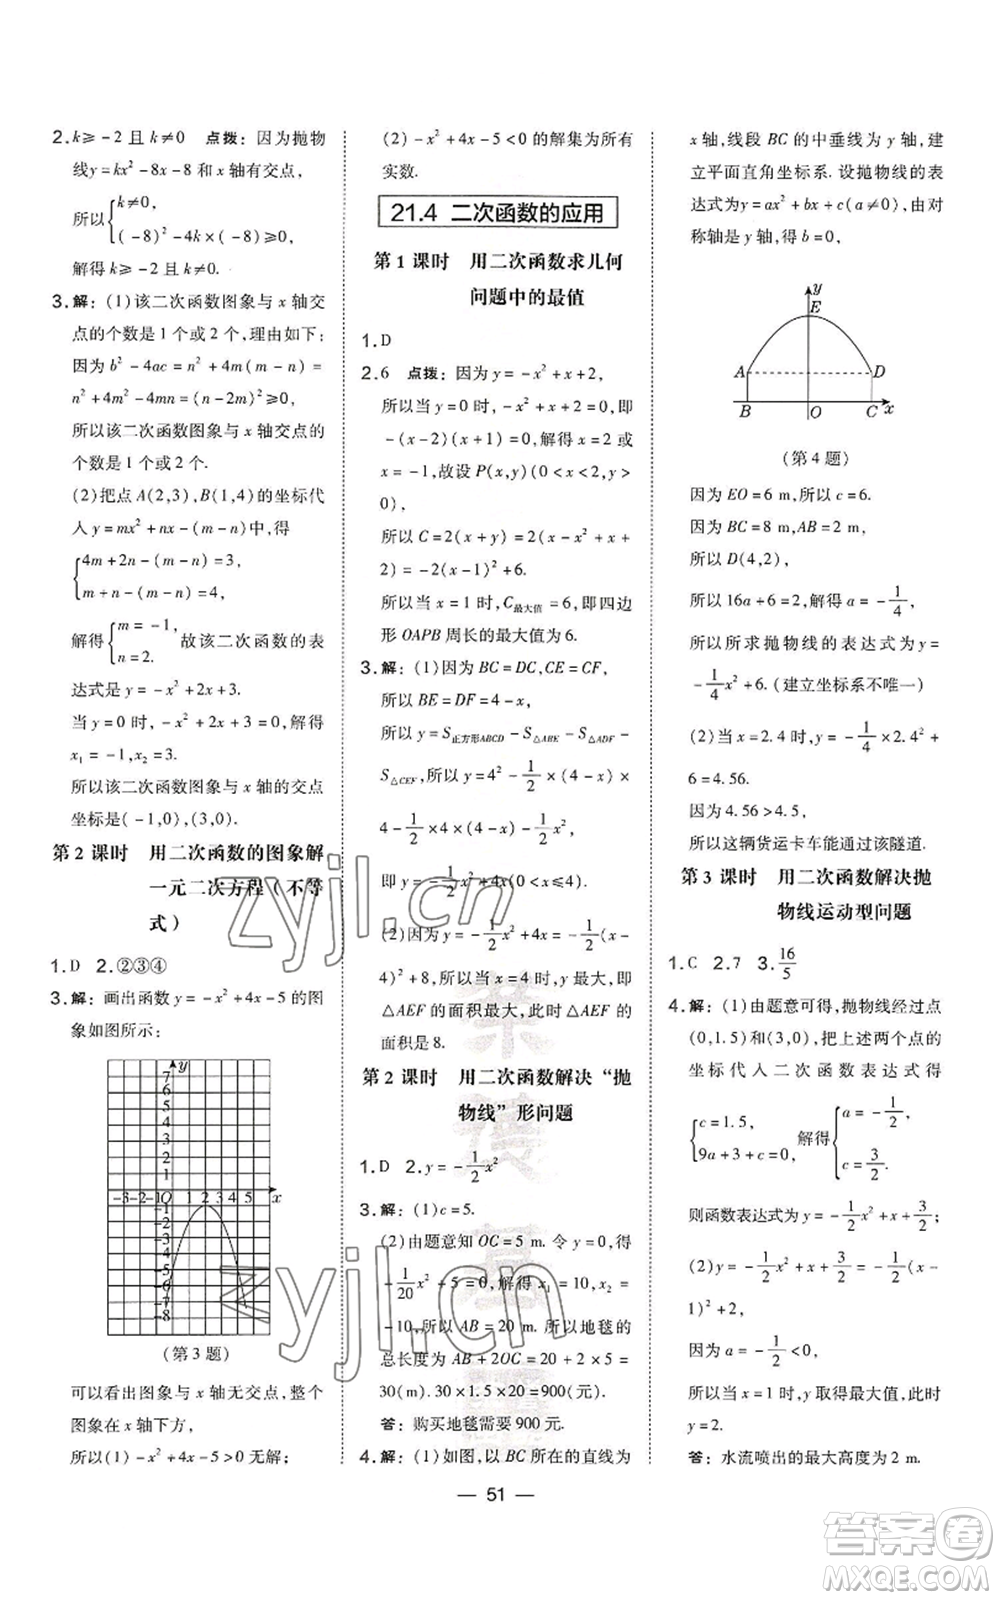 2.k≥-2且k≠0 点拨：因为抛物
线y=kx²-8x-8和x轴有交点，
所以{k≠0,
(-8)²-4k×(-8)≥0,
解得k≥-2且k≠0.
3.解：(1)该二次函数图象与x轴交
点的个数是1个或2个，理由如下：
因为b²-4ac=n²+4m(m-n)=
n²+4m²-4mn=(n-2m)²≥0,
所以该二次函数图象与x轴交点的
个数是1个或2个.
(2)把点A(2,3),B(1,4)的坐标代
入y=mx²+nx-(m-n)中,得
{4m+2n-(m-n)=3,
m+n-(m-n)=4,
解得{m=-1, 故该二次函数的表
n=2.
达式是y=-x²+2x+3.
当y=0时,-x²+2x+3=0,解得
x₁=-1,x₂=3.
所以该二次函数图象与x轴的交点
坐标是(-1,0),(3,0).
第2课时 用二次函数的图象解
一元二次方程(不等
式)
1.D 2.②③④
3.解：画出函数y=-x²+4x-5的图
象如图所示：
y
7
6
5
4
3
2
1
-3-2-1O 1 2 3 4 5 x
-1
-2
-3
-4
-5
-6
-7
-8
(第3题)
可以看出图象与x轴无交点,整个
图象在x轴下方,
所以(1)-x²+4x-5>0无解;
(2)-x²+4x-5<0的解集为所有
实数.
21.4 二次函数的应用
第1课时 用二次函数求几何
问题中的最值
1.D
2.6 点拨：因为y=-x²+x+2,
所以当y=0时,-x²+x+2=0,即
-(x-2)(x+1)=0,解得x=2或
x=-1,故设P(x,y)(0<x<2,y>
0),
所以C=2(x+y)=2(x-x²+x+
2)=-2(x-1)²+6.
所以当x=1时,C最大值=6,即四边
形OAPB周长的最大值为6.
3.解：(1)因为BC=DC,CE=CF,
所以BE=DF=4-x,
所以y=S正方形ABCD-S△ABE-S△ADF-
S△CEF,所以y=4²-1/2×(4-x)×
4-1/2×4×(4-x)-1/2x²,
即y=-1/2x²+4x(0<x≤4).
(2)因为y=-1/2x²+4x=-1/2(x-
4)²+8,所以当x=4时,y最大,即
△AEF的面积最大,此时△AEF的
面积是8.
第2课时 用二次函数解决“抛
物线”形问题
1.D 2.y=-1/2x²
3.解：(1)c=5.
(2)由题意知OC=5 m.令y=0,得
-1/20x²+5=0.解得x₁=10,x₂=
-10,所以AB=20 m.所以地毯的
总长度为AB+2OC=20+2×5=
30(m).30×1.5×20=900(元).
答：购买地毯需要900元.
4.解：(1)如图,以BC所在的直线为
x轴,线段BC的中垂线为y轴,建
立平面直角坐标系.设抛物线的表
达式为y=ax²+bx+c(a≠0),由对
称轴是y轴,知b=0.
y
E
A D
B O C x
(第4题)
因为EO=6 m,所以c=6.
因为BC=8 m,AB=2 m,
所以D(4,2),
所以16a+6=2,解得a=-1/4,
所以所求抛物线的表达式为y=
-1/4x²+6.(建立坐标系不唯一)
(2)当x=2.4时,y=-1/4×2.4²+
6=4.56.
因为4.56>4.5,
所以这辆货运卡车能通过该隧道.
第3课时 用二次函数解决抛
物线运动型问题
1.C 2.7 3.16/5
4.解：(1)由题意可得,抛物线经过点
(0,1.5)和(3,0),把上述两个点的
坐标代入二次函数表达式得
{c=1.5, 解得{a=-1/2,
9a+3+c=0, c=3/2.
则函数表达式为y=-1/2x²+x+3/2;
(2)y=-1/2x²+x+3/2=-1/2(x-
1)²+2,
因为a=-1/2<0,
所以当x=1时,y取得最大值,此时
y=2.
答：水流喷出的最大高度为2 m.
— 51 —
zyjl.cn
zyjl.cn
答案卷
MXQE.COM